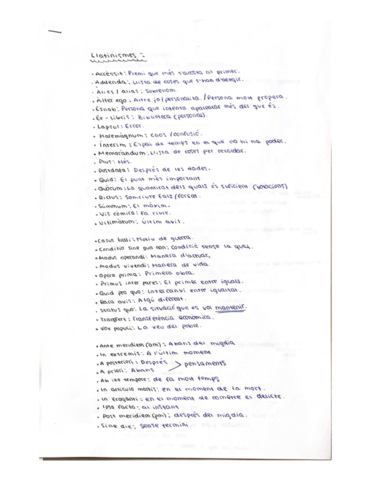 Llatinismes:
· Accèssit: Premi que més s'acosta al primer.
· Addenda: Llista de coses que s'han d'afegir.
· Àlies / alias: Sobrenom.
· Alter ego: Altre jo / personalitat / Persona molt propera.
· Esnob: Persona que intenta aparentar més del que és.
· Ex-libris: Biblioteca (personal).
· Lapsus: Error.
· Maremàgnum: Caos / confusió.
· Interim: Espai de temps en el que no hi ha poder.
· Memoràndum: Llista de coses per recordar.
· Plus: Més.
· Postdata: Després de les dades.
· Quid: El punt més important
· Quòrum: La quantitat dels quals és suficient (votacions)
· Rictus: Somriure fals / forçat.
· Súmmum: El màxim.
· Vis còmica: Fa riure.
· Ultimàtum: Últim avís.
· Casus belli: Motiu de guerra.
· Conditio sine qua non: Condició sense la qual.
· Modus operandi: Manera d'actuar.
· Modus vivendi: Manera de vida.
· Opera prima: Primera obra.
· Primus inter pares: El primer entre iguals.
· Quid pro quo: Intercanvi entre iguals.
· Rara avis: Algú diferent.
· Status quo: La situació que es va mantenir.
· Transfers: Transferència econòmica.
· Vox populi: La veu del poble.
· Ante meridiem (am): Abans del migdia
· In extremis: A l'últim moment
· A posteriori: Després > pensaments
· A priori: Abans
· Ab illo tempore: de fa molt temps
· In articulo mortis: en el moment de la mort.
· In fraganti: en el moment de cometre el delicte.
· Ipso facto: al instant
· Post meridiem (pm): després del migdia.
· Sine die: sense termini